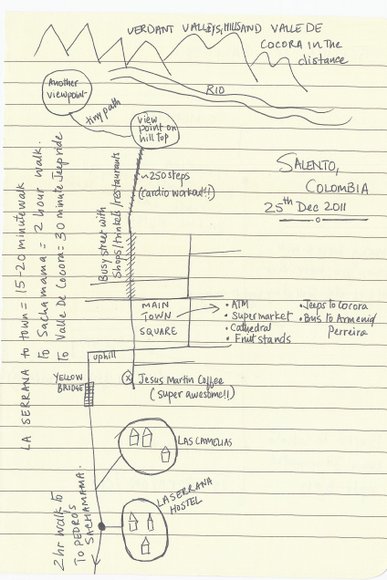 VERDANT VALLEYS, HILLS AND VALLE DE
COCORA IN THE
distance
Another
viewpoint
RIO
tiny path
view
point on
hill top
~250 steps
(cardio workout!!)
SALENTO,
COLOMBIA
25th Dec 2011
Busy street with
Shops/trinkets/restaurants
LA SERRANA to town = 15-20 minute walk
To Sachamama = 2 hour walk.
To Valle De Cocora = 30 minute Jeep ride
MAIN
TOWN
SQUARE
• ATM
• Supermarket
• Cathedral
• Fruit stands
• Jeeps to Cocora
• Bus to Armenia/
Perreira
uphill
YELLOW
BRIDGE
Jesus Martin Coffee
(super awesome!!)
LAS CAMELIAS
LA SERRANA
HOSTEL
2 hr walk to
TO PEDRO'S
SACHAMAMA.